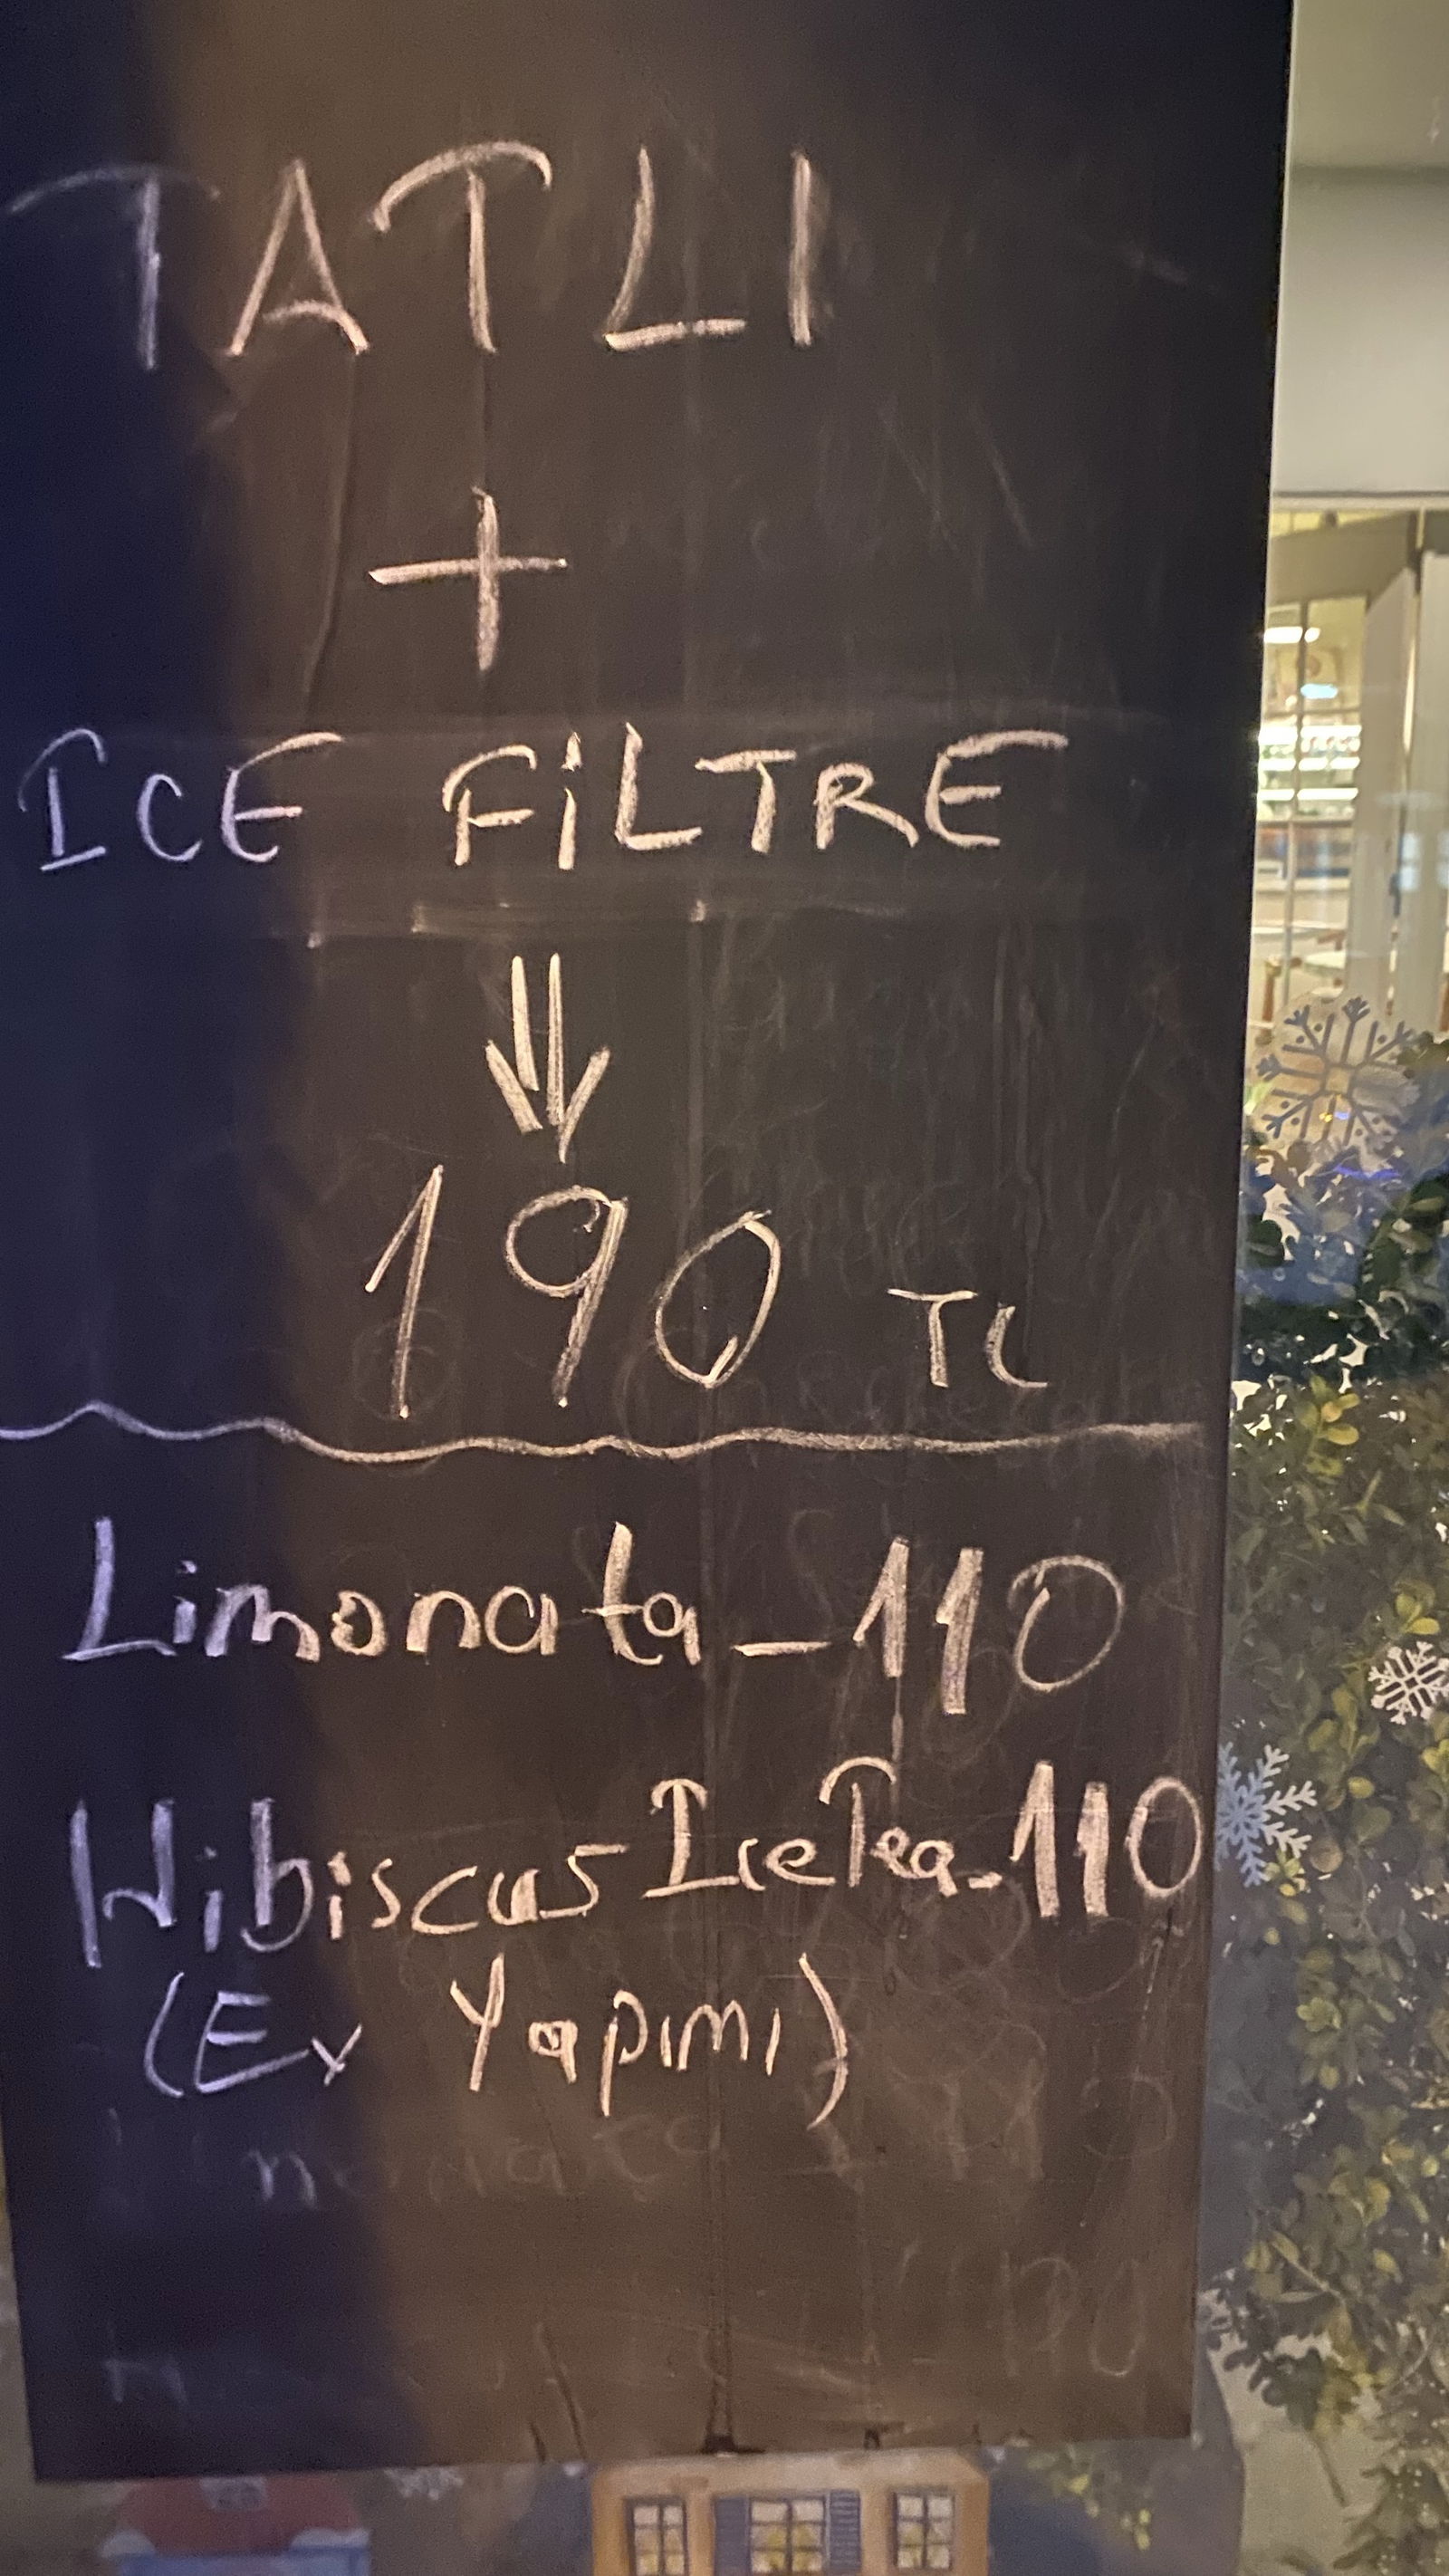 TATLI
+
ICE FİLTRE
190 TL
Limonata - 110
Hibiscus IceTea - 110
(Ev Yapımı)